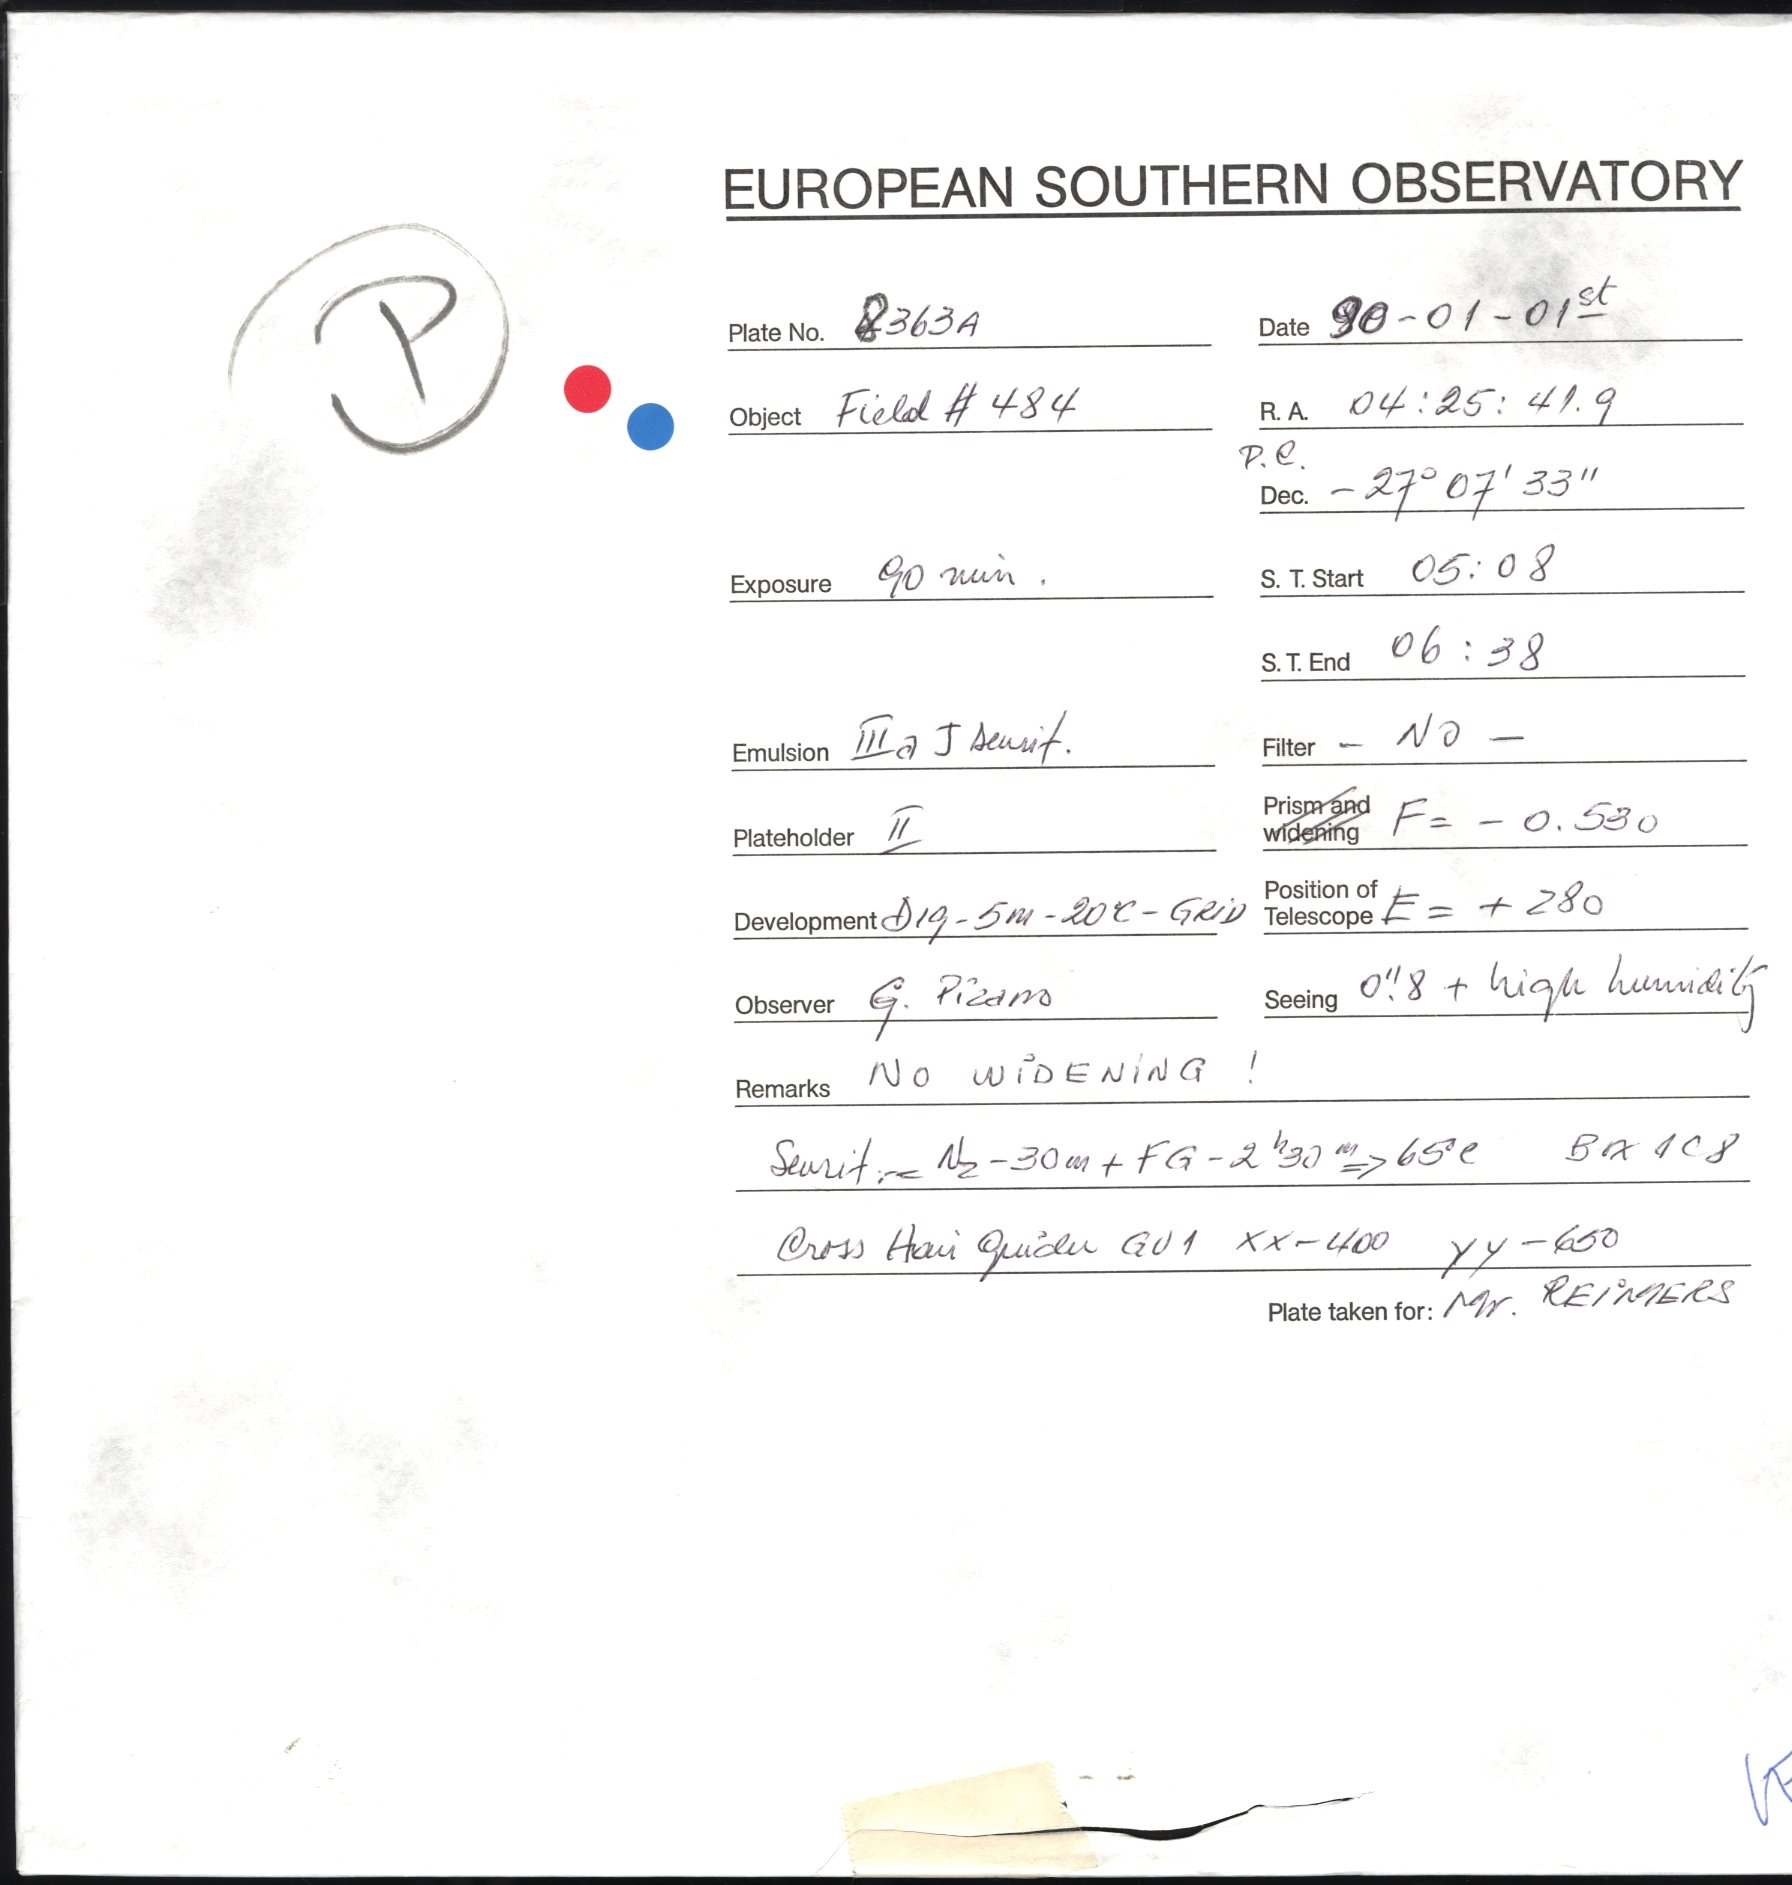 EUROPEAN SOUTHERN OBSERVATORY
P
Plate No. 8363A
Date 90-01-01st
Object Field # 484
R. A. 04:25:41.9
P.C.
Dec. - 27° 07' 33"
Exposure 90 min.
S. T. Start 05:08
S. T. End 06:38
Emulsion IIIa J sensit.
Filter - NO -
Plateholder II
Prism and widening F= - 0.530
Development D19-5m-20°C-GRID
Position of Telescope E= + 280
Observer G. Pizarro
Seeing 0".8 + high humidity
Remarks NO WIDENING !
Sensit.:= N2-30m + FG-2h30m=>65°C BOX 1C8
Cross Hair Guider GU1 XX-400 YY-650
Plate taken for: Mr. REIMERS